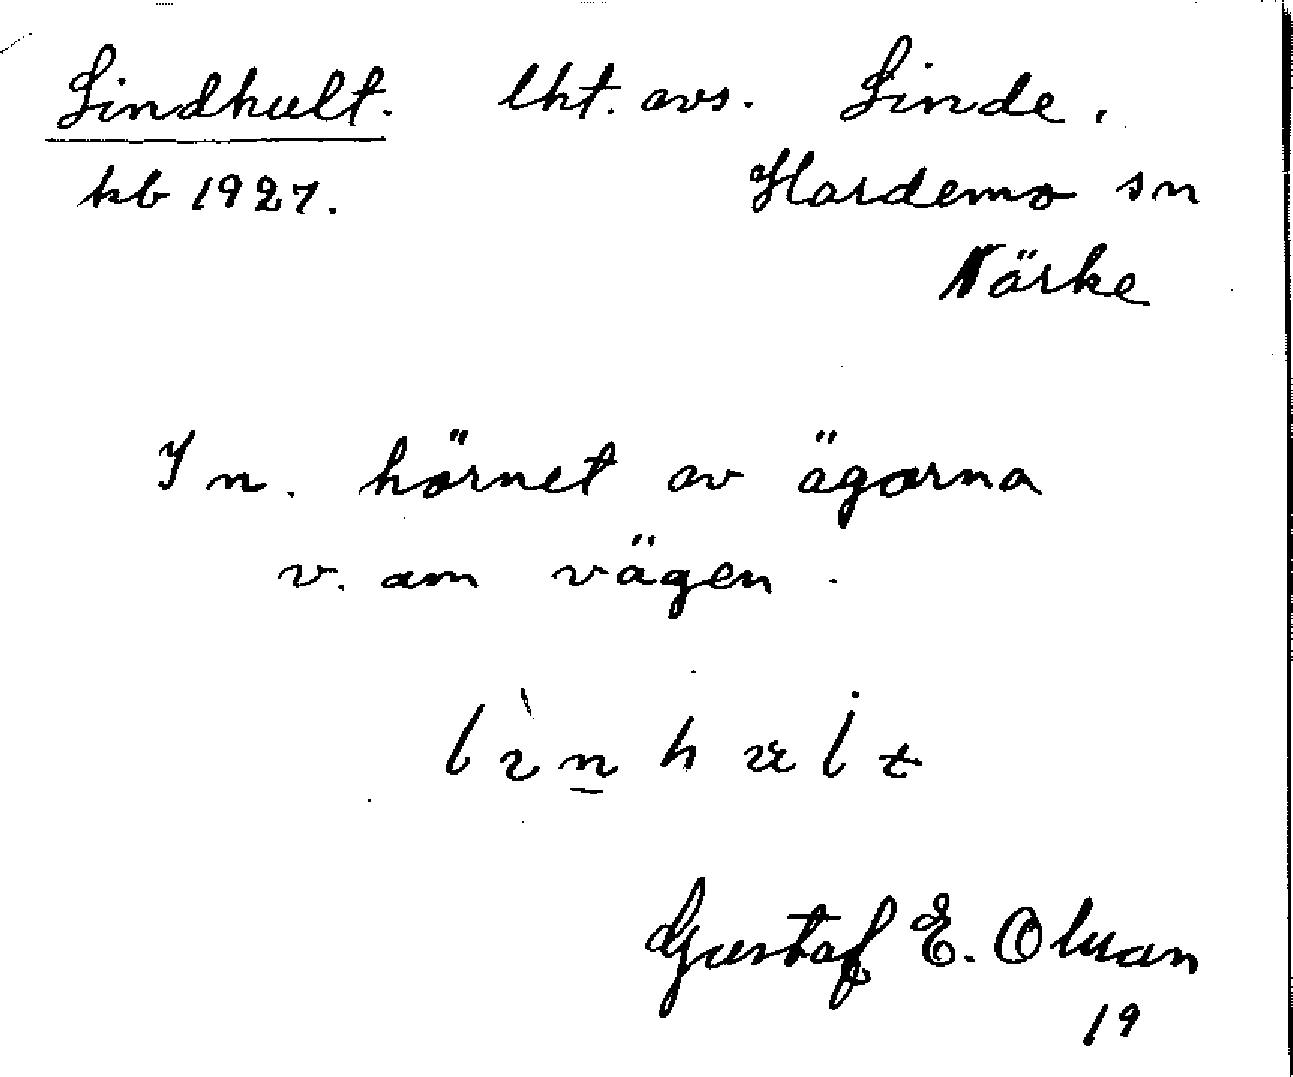 Lindhult. lht. avs. Linde.
kb 1927. Hardemo sn
Närke
I n. hörnet av ägorna
v. om vägen.
lìn̲hult
Gustaf E. Olsson
19